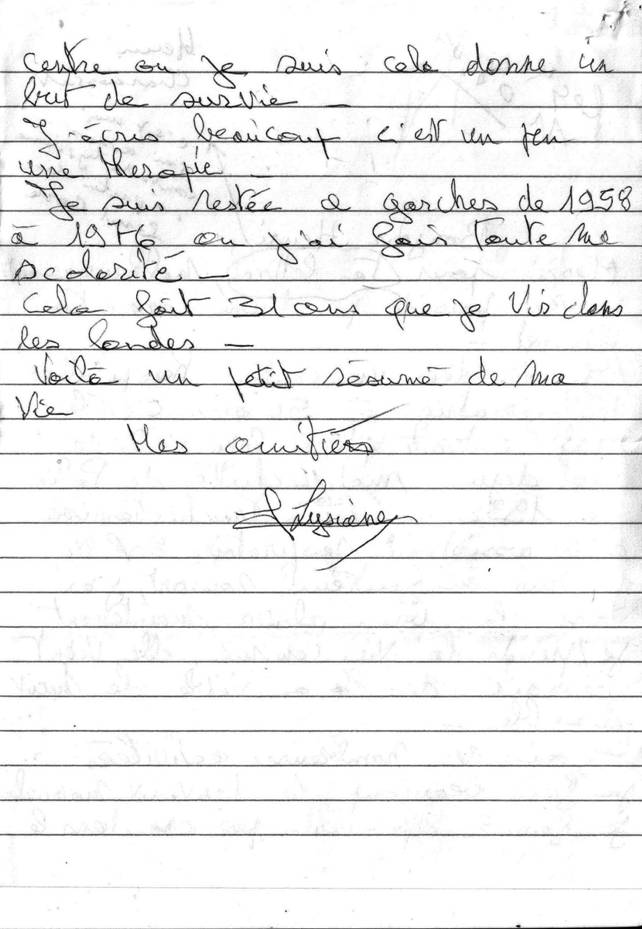 centre ou je suis cela donne un
but de survie –
J'écris beaucoup c'est un peu
une therapie –
Je suis restée a garches de 1958
à 1976 ou j'ai fais toute ma
scolarité –
cela fait 31 ans que je vis dans
les landes –
Voilà un petit résumé de ma
vie
Mes amitiés
Lysiane